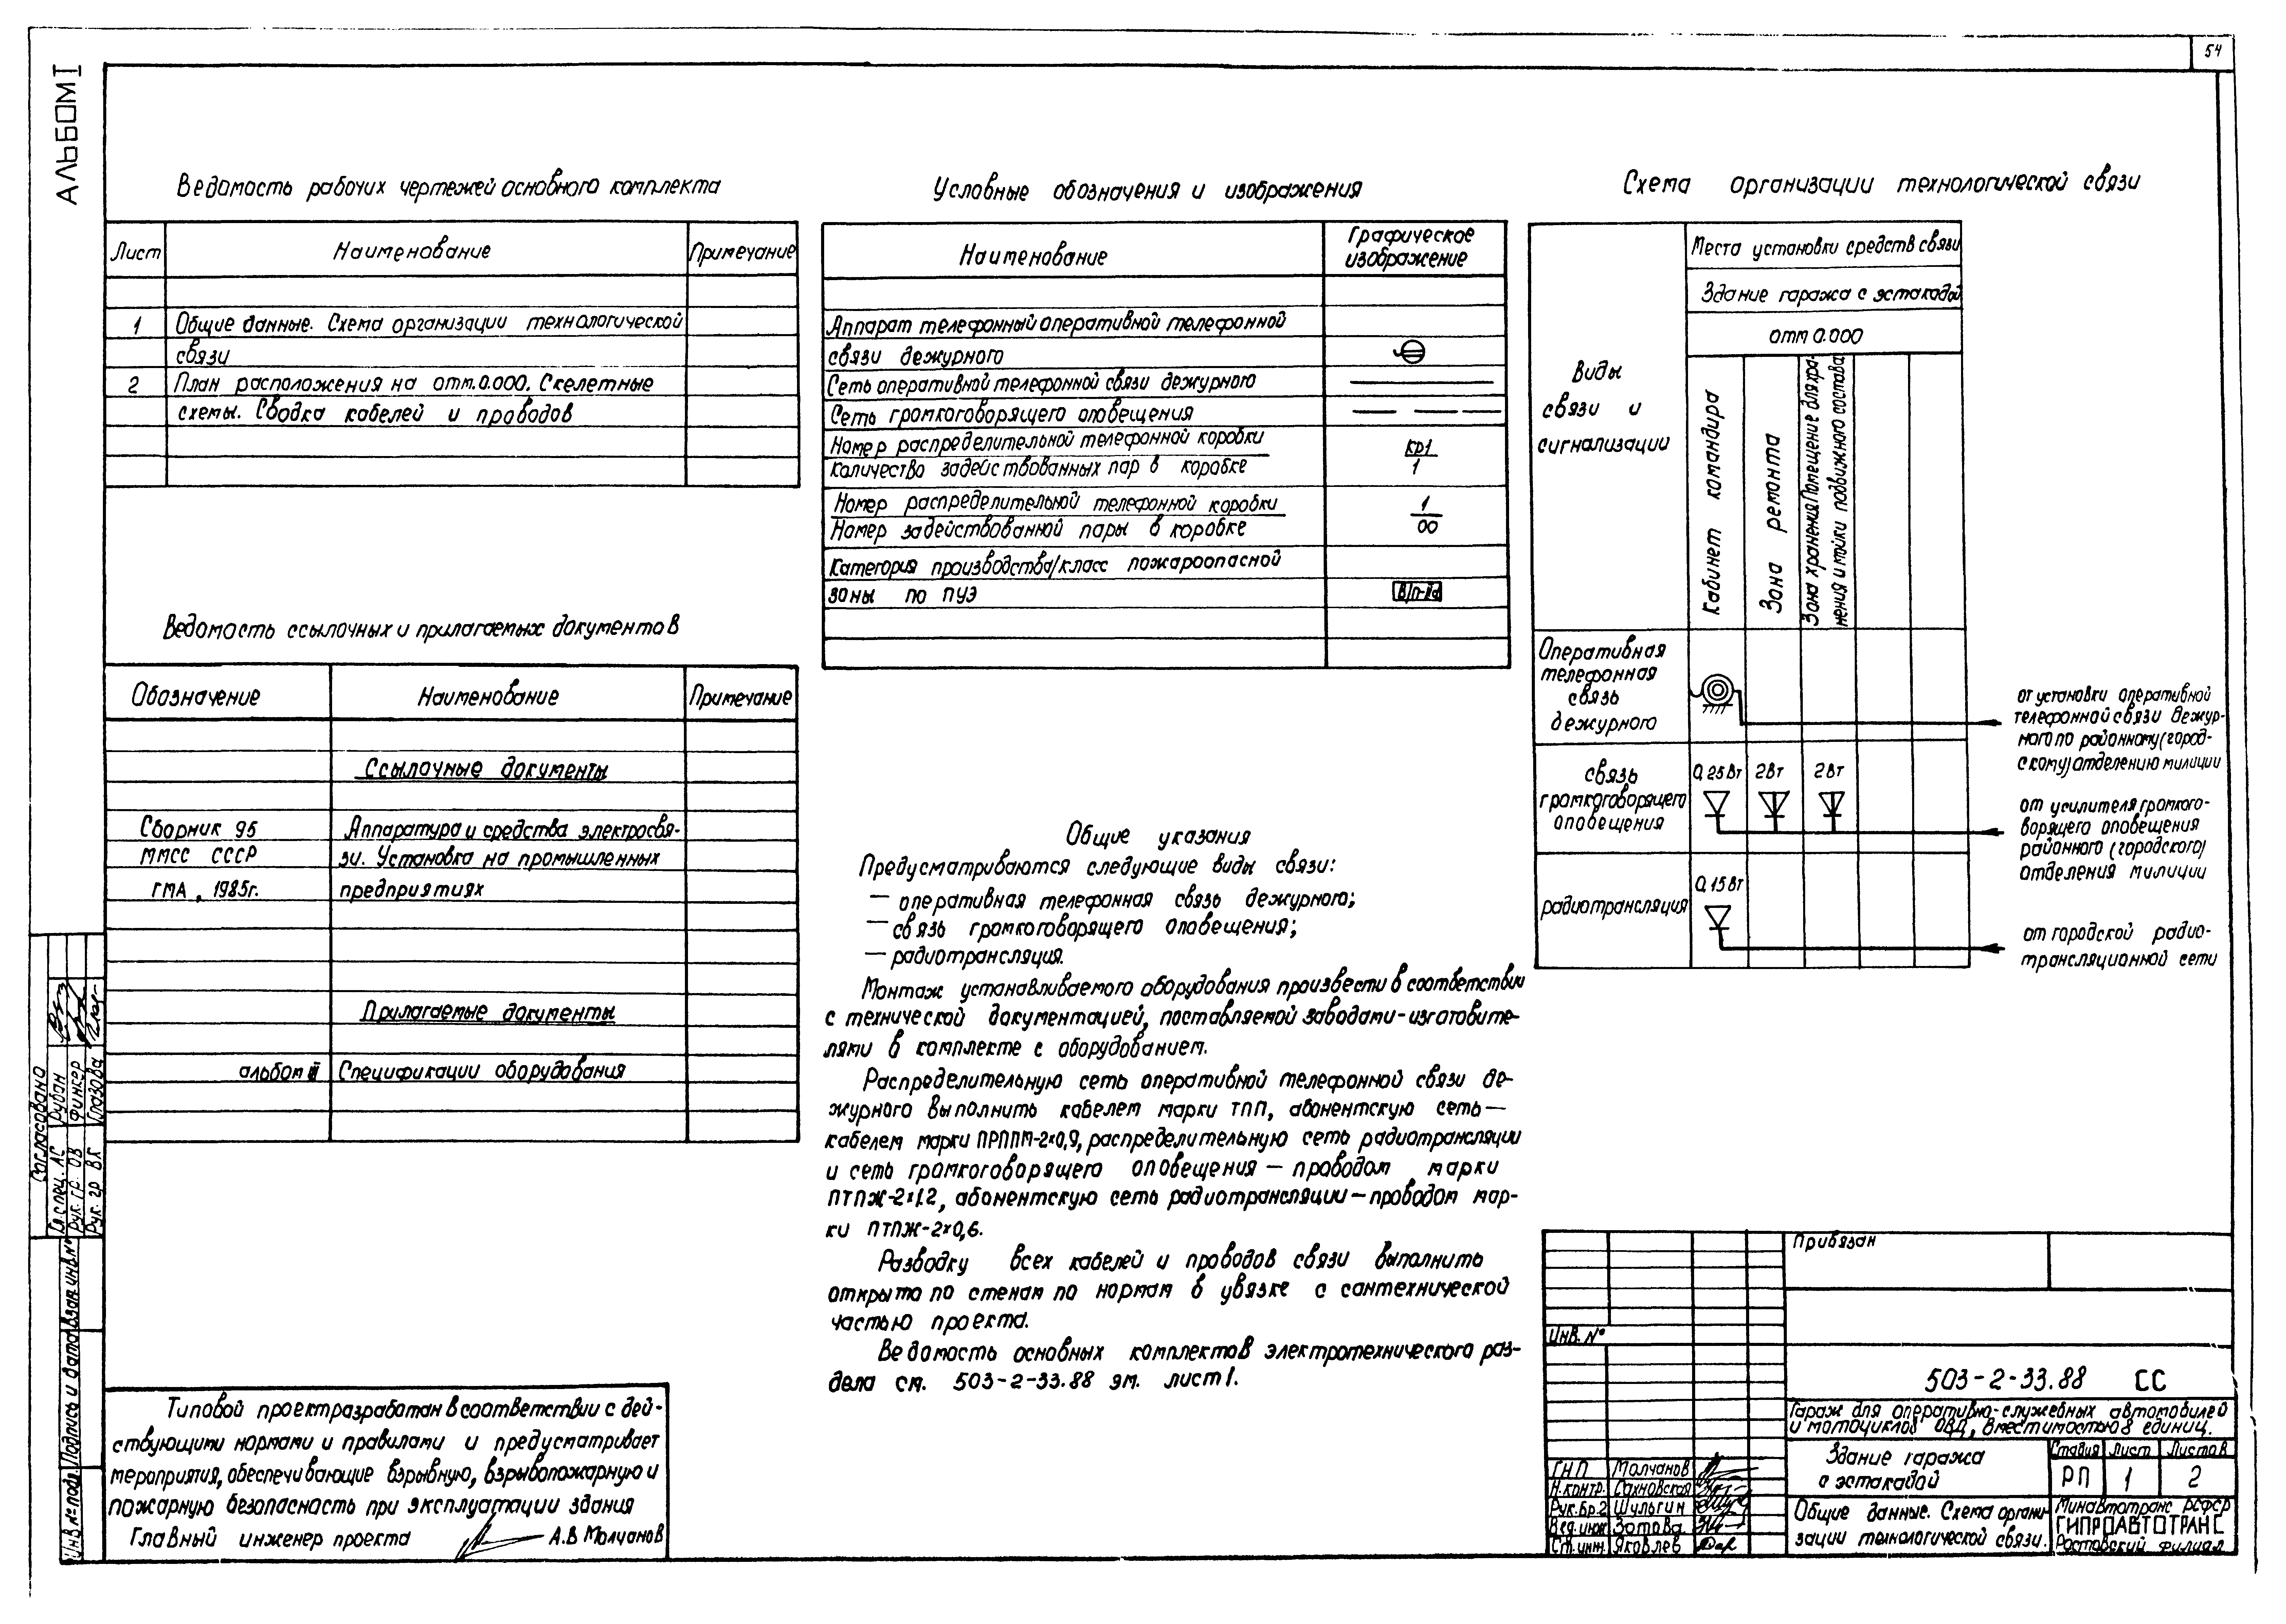 54
АЛЬБОМ I
Ведомость рабочих чертежей основного комплекта
Лист Наименование Примечание
1 Общие данные. Схема организации технологической
связи
2 План расположения на отм. 0.000. Скелетные
схемы. Сводка кабелей и проводов
Ведомость ссылочных и прилагаемых документов
Обозначение Наименование Примечание
Ссылочные документы
Сборник 95 Аппаратура и средства электросвя-
ММСС СССР зи. Установка на промышленных
ГМА, 1985г. предприятиях
Прилагаемые документы
альбом Спецификации оборудования
Условные обозначения и изображения
Наименование Графическое
изображение
Аппарат телефонный оперативной телефонной
связи дежурного
Сеть оперативной телефонной связи дежурного
Сеть громкоговорящего оповещения
Номер распределительной телефонной коробки КР1
Количество задействованных пар в коробке 1
Номер распределительной телефонной коробки 1
Номер задействованной пары в коробке 00
Категория производства/класс пожароопасной
зоны по ПУЭ В/П-IIа
Общие указания
Предусматриваются следующие виды связи:
— оперативная телефонная связь дежурного;
— связь громкоговорящего оповещения;
— радиотрансляция.
Монтаж устанавливаемого оборудования произвести в соответствии
с технической документацией, поставляемой заводами-изготовите-
лями в комплекте с оборудованием.
Распределительную сеть оперативной телефонной связи де-
журного выполнить кабелем марки ТПП, абонентскую сеть —
кабелем марки ПРППМ-2×0,9, распределительную сеть радиотрансляции
и сеть громкоговорящего оповещения — проводом марки
ПТПЖ-2×1.2, абонентскую сеть радиотрансляции — проводом мар-
ки ПТПЖ-2×0,6.
Разводку всех кабелей и проводов связи выполнить
открыто по стенам по нормам в увязке с сантехнической
частью проекта.
Ведомость основных комплектов электротехнического раз-
дела см. 503-2-33.88 эм. лист 1.
Схема организации технологической связи
Виды
связи и
сигнализации
Места установки средств связи
Здание гаража с эстакадой
отм 0.000
Кабинет командира
Зона ремонта
Зона хранения Помещение для хра-
нения и мойки подвижного состава
Оперативная
телефонная
связь
дежурного
от установки оперативной
телефонной связи дежур-
ного по районному (город-
скому) отделению милиции
связь
громкоговорящего
оповещения
0,25 Вт 2Вт 2Вт
от усилителя громкого-
ворящего оповещения
районного (городского)
отделения милиции
радиотрансляция
0,15 Вт
от городской радио-
трансляционной сети
Типовой проект разработан в соответствии с дей-
ствующими нормами и правилами и предусматривает
мероприятия, обеспечивающие взрывную, взрывопожарную и
пожарную безопасность при эксплуатации здания
Главный инженер проекта А.В Молчанов
Согласовано
Гл. спец. АС Рубан
Рук. гр. ОВ Финкер
Рук. гр ВК Глазова
Инв № подл. Подпись и дата Взам. инв. №
Привязан
Инв. №
503-2-33.88 СС
Гараж для оперативно-служебных автомобилей
и мотоциклов ОВД, вместимостью 8 единиц.
ГИП Молчанов
Н.контр. Сахновская
Рук.бр.2 Шульгин
Вед.инж Зотова
Ст.инж. Яковлев
Здание гаража
с эстакадой
Стадия Лист Листов
РП 1 2
Общие данные. Схема органи-
зации технологической связи.
Минавтотранс РСФСР
ГИПРОАВТОТРАНС
Ростовский филиал